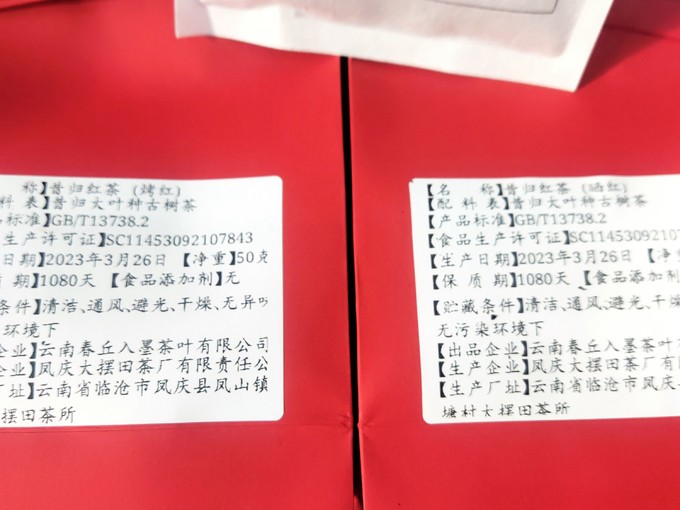 称】昔归红茶 (烤红)
料 表】昔归大叶种古树茶
品标准】GB/T13738.2
生产许可证】SC11453092107843
日期】2023年3月26日 【净重】50克
质 期】1080天 【食品添加剂】无
条件】清洁、通风、避光、干燥、无异
环境下
企业】云南春丘入墨茶叶有限公司
企业】凤庆大摆田茶厂有限责任公
厂址】云南省临沧市凤庆县凤山镇
摆田茶所
【名 称】昔归红茶 (晒红)
【配 料 表】昔归大叶种古树茶
【产品标准】GB/T13738.2
【食品生产许可证】SC1145309210784
【生产日期】2023年3月26日 【净
【保 质 期】1080天 【食品添加
【贮藏条件】清洁、通风、避光、干燥
无污染环境下
【出品企业】云南春丘入墨茶叶有
【生产企业】凤庆大摆田茶厂有限
【生产厂址】云南省临沧市凤庆
塘村大摆田茶所